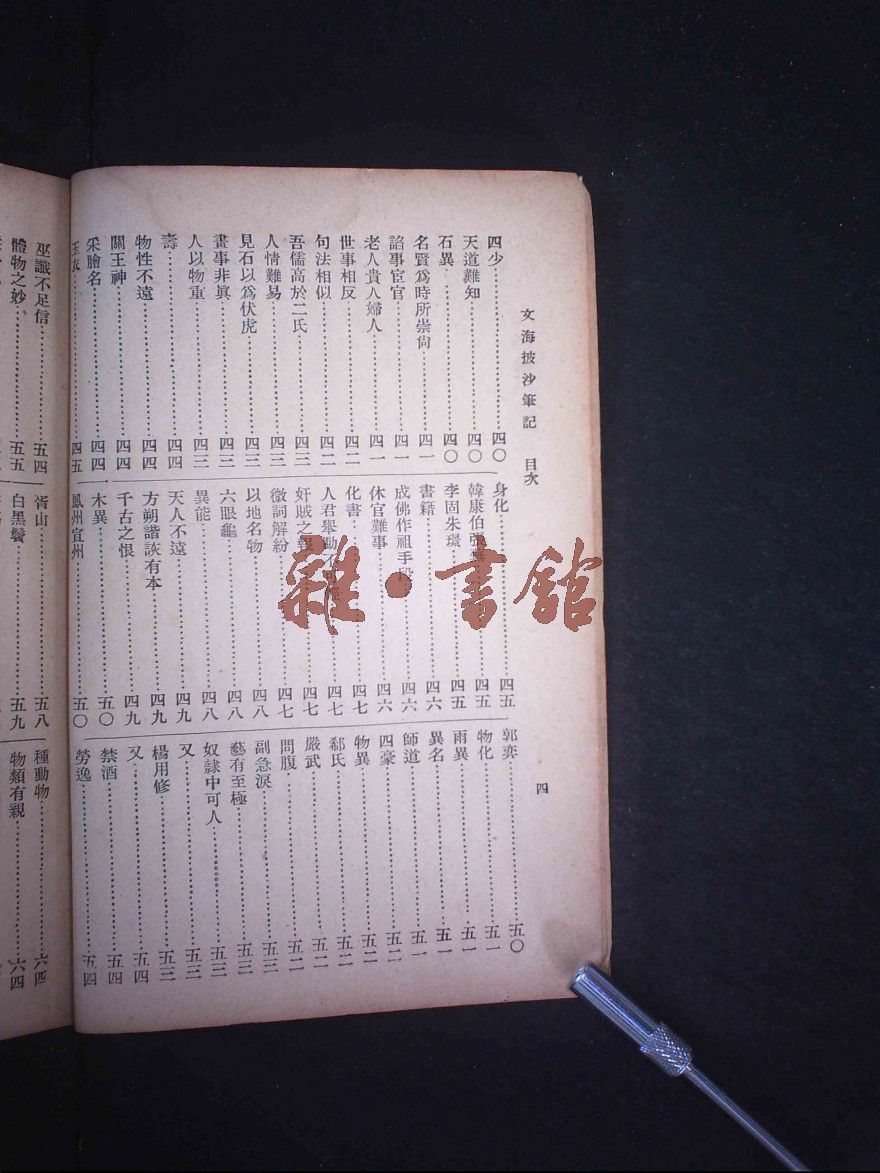 文海披沙筆記 目次
四
四少⋯⋯四〇
天道難知⋯⋯四〇
石異⋯⋯四〇
名賢為時所崇尙⋯⋯四一
諂事宦官⋯⋯四一
老人貴人婦人⋯⋯四一
世事相反⋯⋯四二
句法相似⋯⋯四二
吾儒高於二氏⋯⋯四三
人情難易⋯⋯四三
見石以為伏虎⋯⋯四三
畫事非眞⋯⋯四三
人以物重⋯⋯四三
壽⋯⋯四四
物性不遠⋯⋯四四
關王神⋯⋯四四
采膾名⋯⋯四四
玉衣⋯⋯四五
身化⋯⋯四五
韓康伯張⋯⋯四五
李固朱環⋯⋯四五
書籍⋯⋯四六
成佛作祖手段⋯⋯四六
休官難事⋯⋯四六
化書⋯⋯四七
人君舉動不可⋯⋯四七
奸賊之報⋯⋯四七
微詞解紛⋯⋯四七
以地名物⋯⋯四八
六眼龜⋯⋯四八
異能⋯⋯四八
天人不遠⋯⋯四九
方朔諧詼有本⋯⋯四九
千古之恨⋯⋯四九
木異⋯⋯五〇
鳳州宜州⋯⋯五〇
郭奕⋯⋯五〇
物化⋯⋯五一
雨異⋯⋯五一
異名⋯⋯五一
師道⋯⋯五一
四豪⋯⋯五二
物異⋯⋯五二
郗氏⋯⋯五二
嚴武⋯⋯五二
問腹⋯⋯五二
副急淚⋯⋯五三
藝有至極⋯⋯五三
奴隸中可人⋯⋯五三
又⋯⋯五三
楊用修⋯⋯五三
又⋯⋯五四
禁酒⋯⋯五四
勞逸⋯⋯五四
巫讖不足信⋯⋯五四
體物之妙、⋯⋯五五
胥山⋯⋯五八
白黑鬢⋯⋯五九
種動物⋯⋯六四
物類有親⋯⋯六四
雜·書館